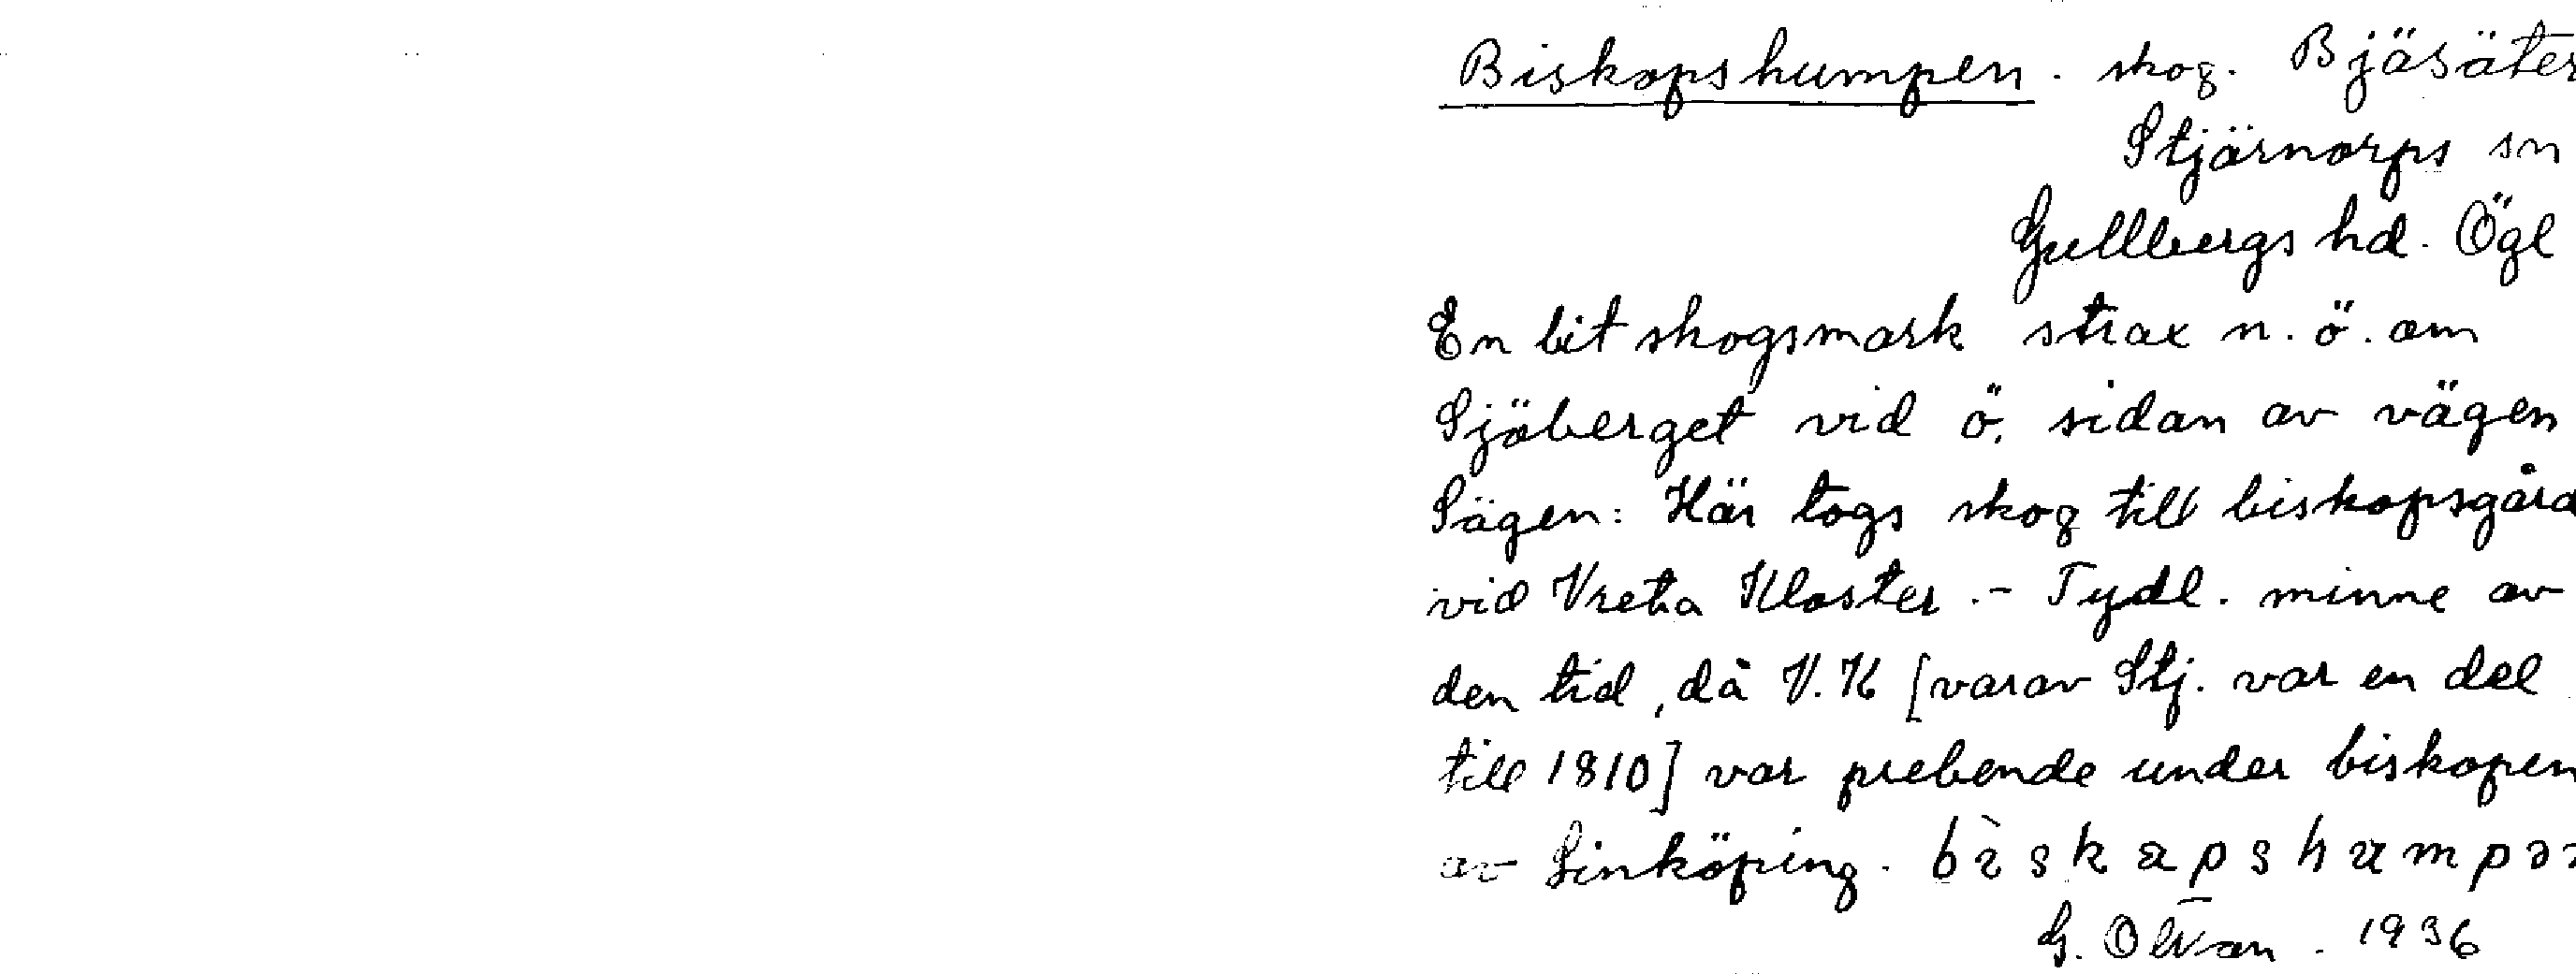 Biskopshumpen. skog. Bjäsäter
Stjärnorps sn
Gullbergs hd. Ögl
En bit skogsmark strax n. ö. om
Sjöberget vid ö. sidan av vägen
Sägen: Här togs skog till biskopsgård
vid Vreta Kloster. - Tydl. minne av
den tid, då V. K [varav Stj. var en del
till 1810] var prebende under biskopen
av Linköping.
G. 1936